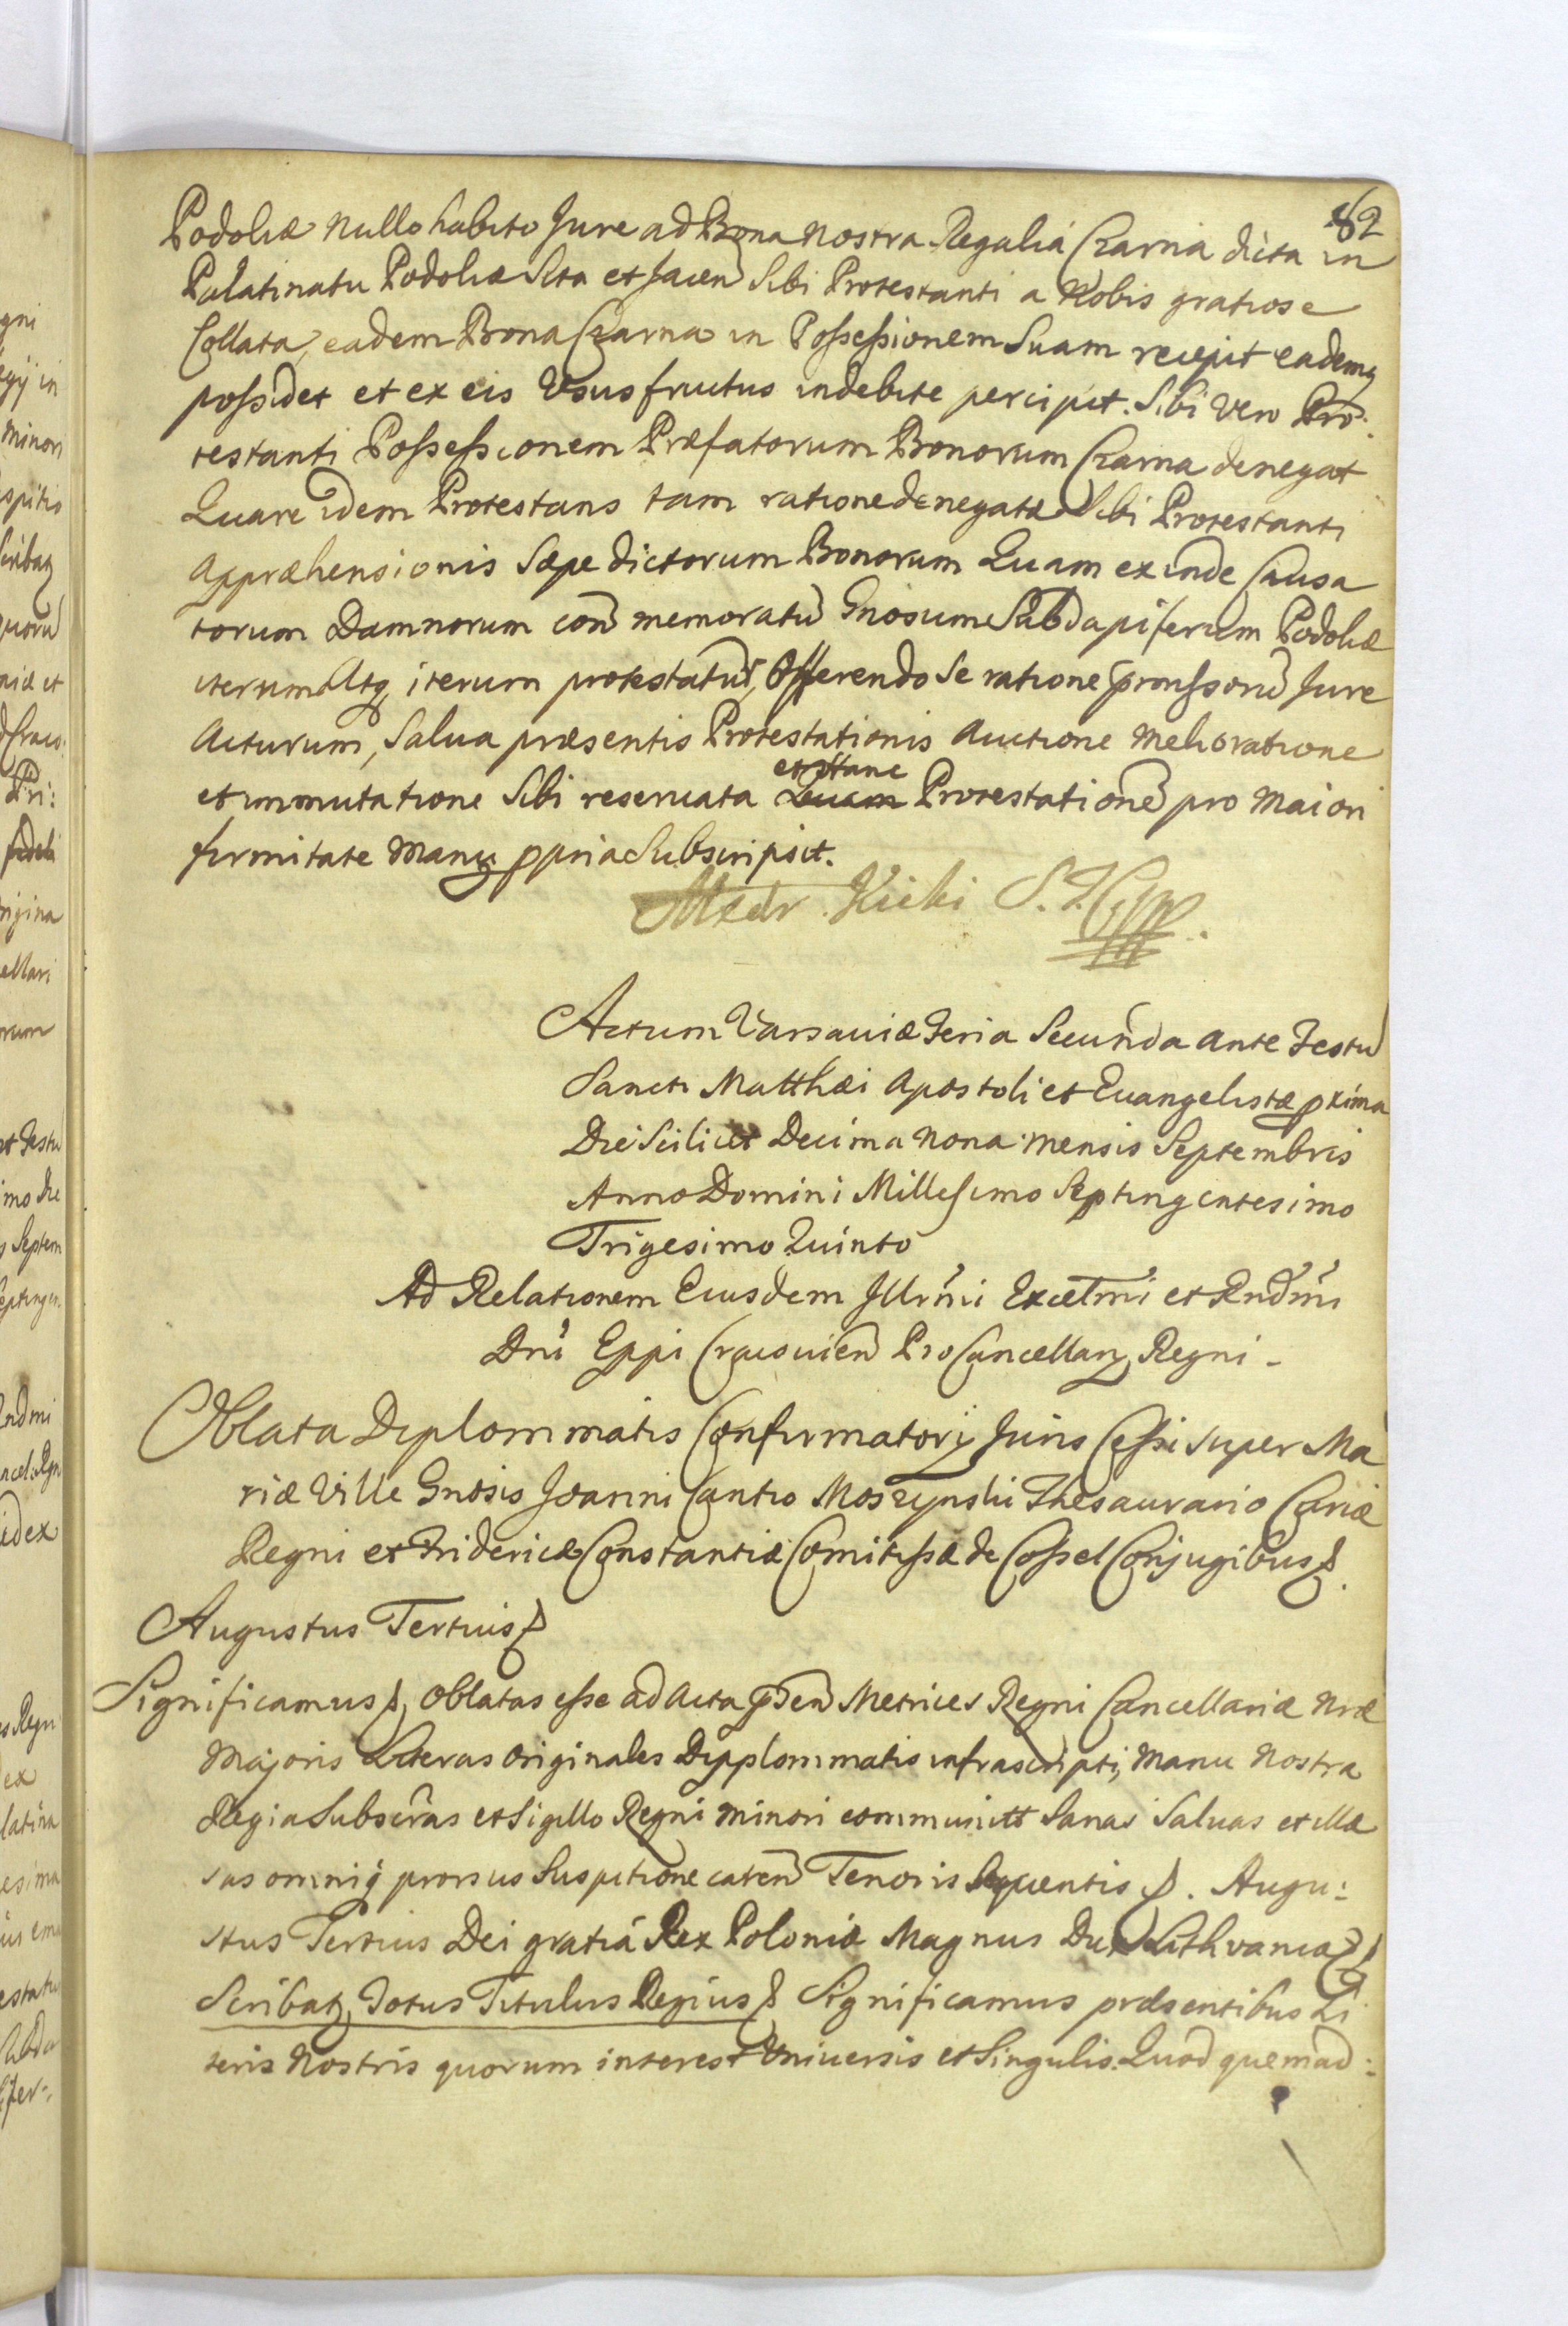 82
Podoliæ nullo habito Jure ad Bona nostra Regalia Czarna dicta in
Palatinatu Podoliæ Sita et Jacen Sibi Protestanti a Nobis gratiose
Collata, eadem Bona Czarna in Possessionem Suam recepit eademq
possidet et ex eis Ususfructus indebite percipit. Sibi vero Pro:
testanti Possessionem Præfatorum Bonorum Czarna denegat
Quare idem Protestans tam ratione denegatæ Sibi Protestanti
Appræhensionis Sæpe dictorum Bonorum Quam exinde Causa
torum Damnorum con memoratu Gnosum Subdapiferum Podoliæ
iterum Atq iterum protestatur, Offerendo Se ratione præmissoru Jure
Acturum, Salua præsentis Protestationis Auctione Melioratione
et Hanc
et immutatione Sibi reseruata Quam Protestatione pro Maiori
firmitate Manu ppria Subscripsit.
Kicki
Actum Varsauiæ Feria Secunda Ante Festu
Sancti Matthæi Apostoli et Euangelistæ pxima
Die Scilicet Decima Nona mensis Septembris
Anno Domini Millesimo Septingentesimo
Trigesimo Quinto
Ad Relationem Eiusdem Illrmi Excellmi et Rndmi
Dni Eppi Cracouien ProCancellarz Regni -
Oblata Diplommatis Confirmatorij Juris Cessi super Ma
riæ Ville Gnosis Joanni Cantio Moszynski Thesaurario Curiæ
Regni et Fridericæ Constantiæ Comitissæ de Cossel Conjugibus
Augustus Tertius
Significamus oblatas esse ad Acta pñden Metrices Regni Cancellariæ Nræ
Majoris Literas Originales Dipplommatis infrascripti, Manu Nostra
Regia Subscras et Sigillo Regni minori communitt Sanas Saluas et illæ
sas omniq prorsus Suspitione caren Tenoris Sequentis . Augu:
stus Tertius Dei gratiá Rex Poloniæ Magnus Dux Lithvaniæ
Scribatz Totus Titulus Regius Significamus præsentibus Li
teris Nostris quorum interest Vniuersis et Singulis. Quod quemad: